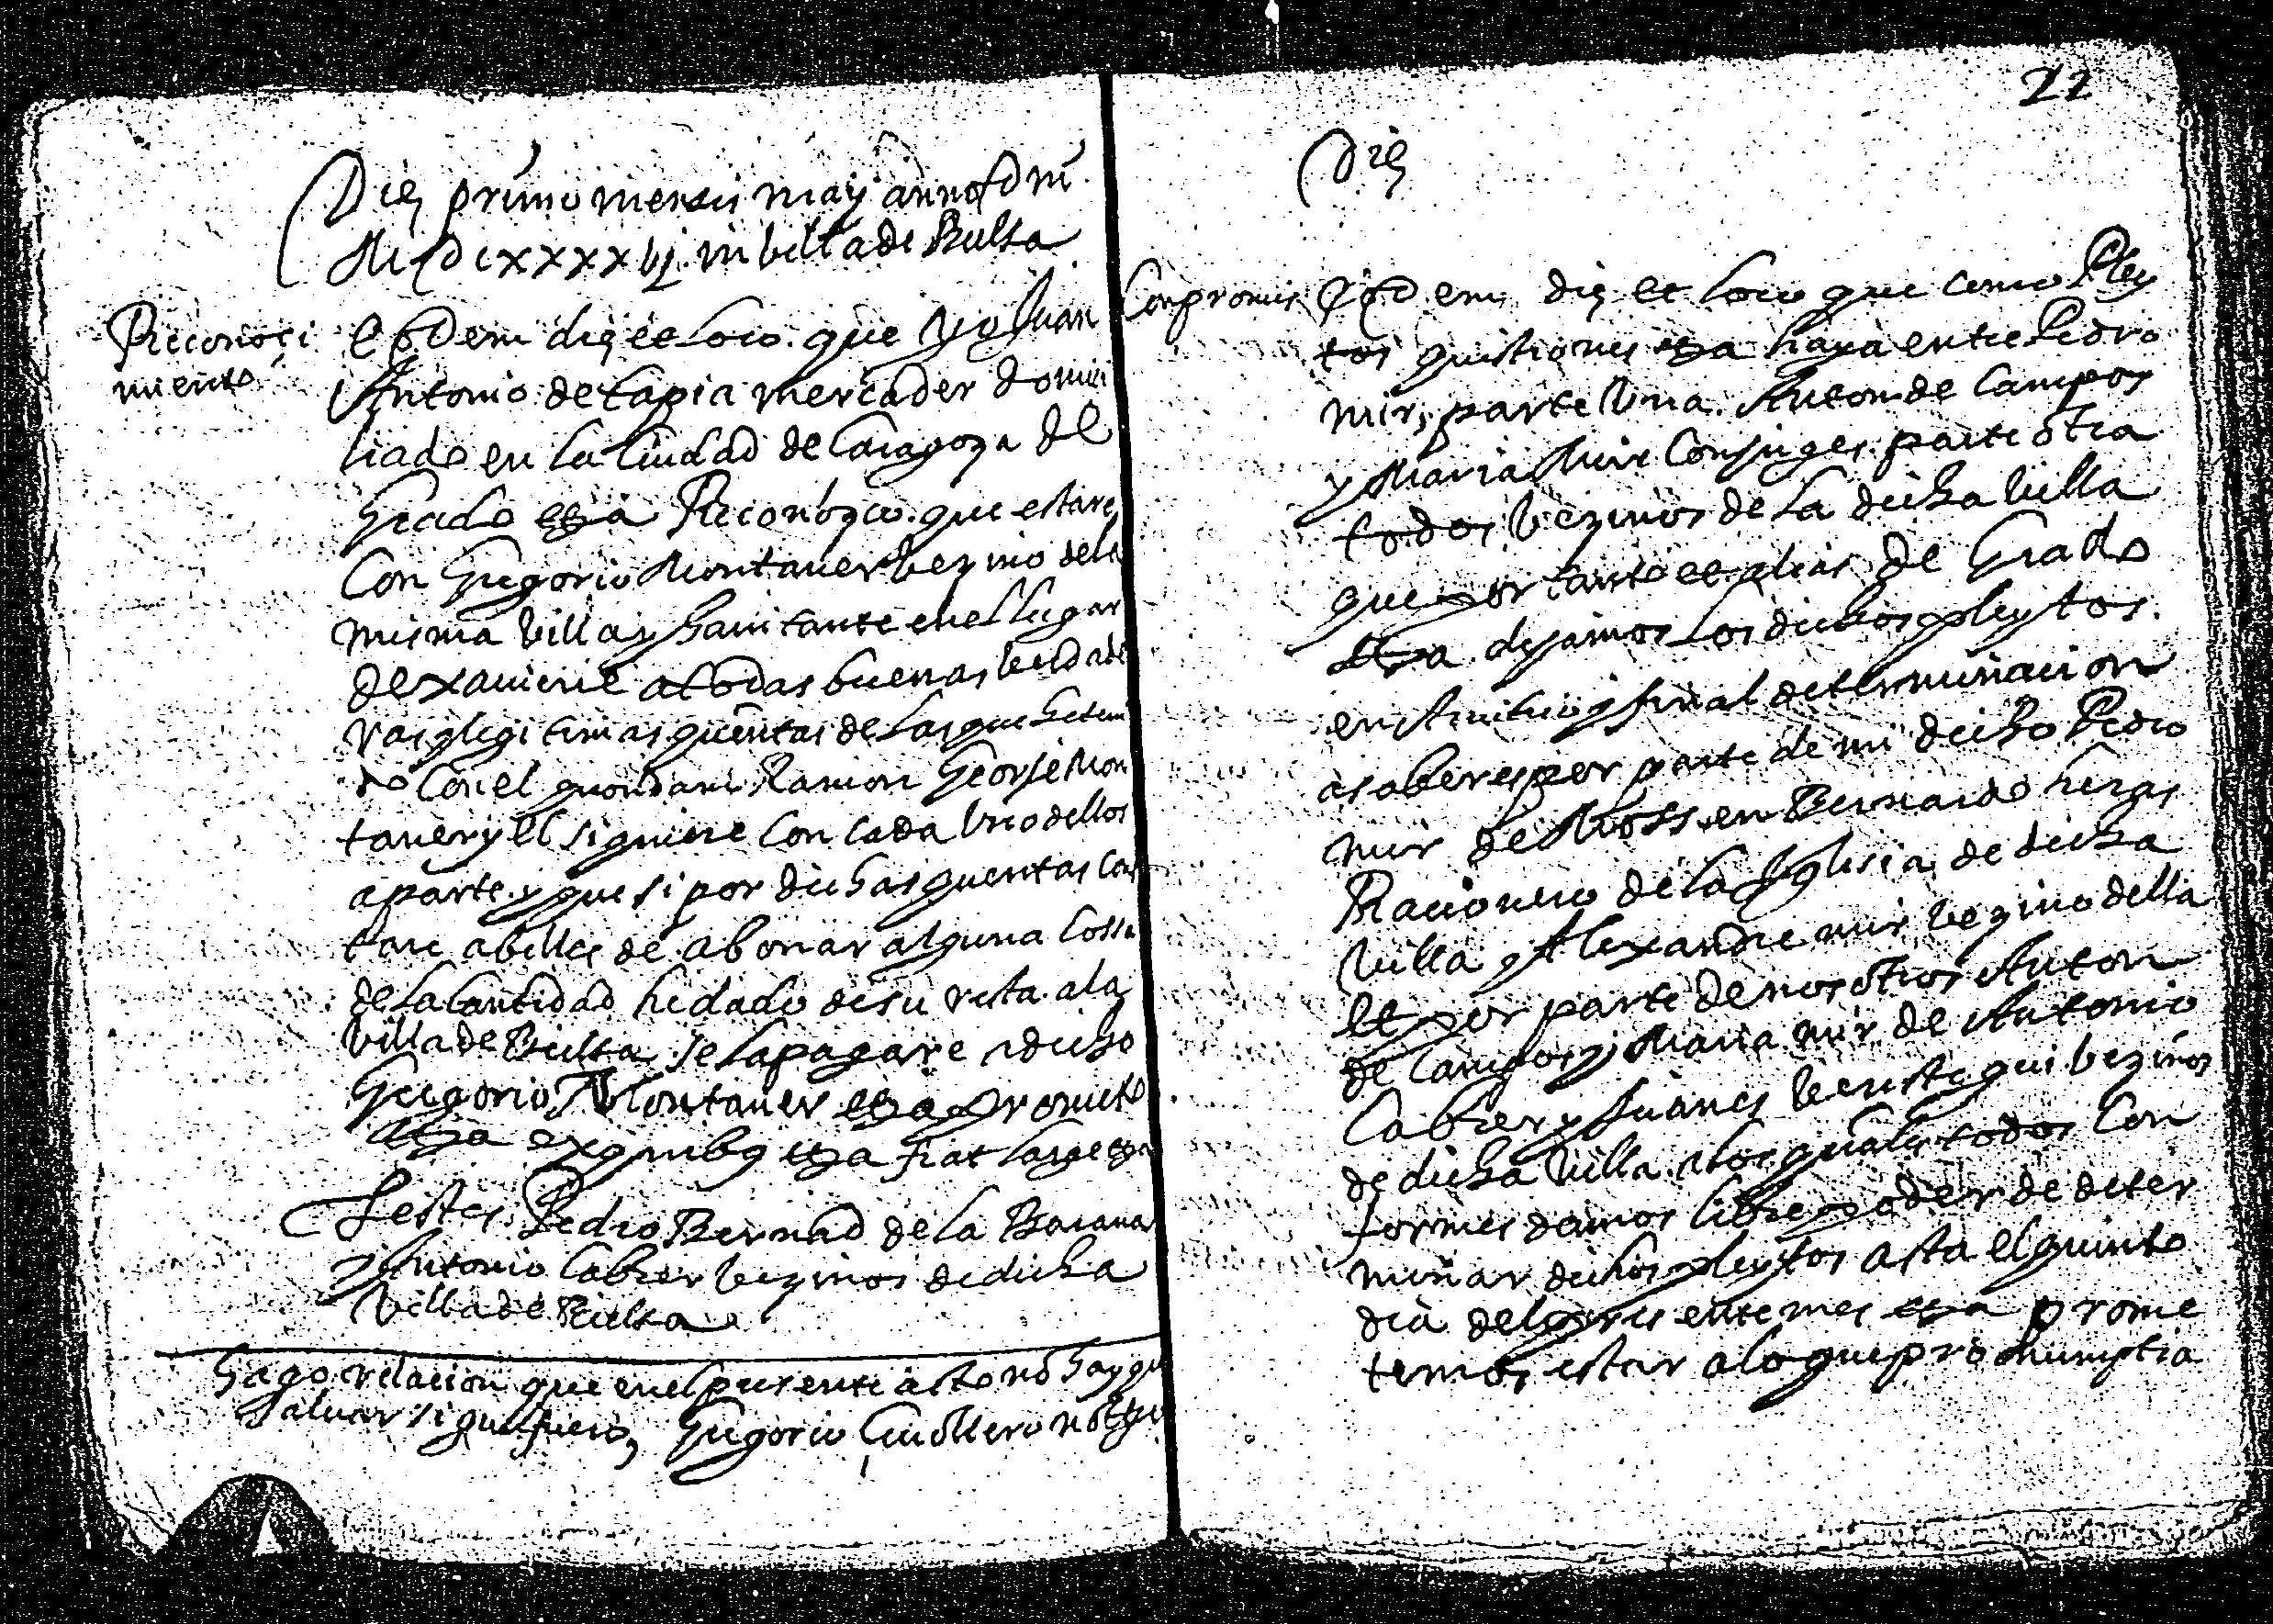 Die primo mensis maij anno Dni
MDCxxxxvj in villa de Bielsa
Reconoçi
miento
Eodem die et loco. que Yo Juan
Antonio de tapia mercader domici
liado en la Ciudad de Caragoça de
Grado etta Reconozco. que estare
Con Gregorio Montaner vezino de la
misma villa y havitante en el lugar
de xavierre a todas buenas verdade
ras y legitimas quentas de las que he teni
do con el quondam Ramon George Mon
taner y el siguiere con cada Uno dellos
a parte. y que si por dichas quentas cons
tare abelles de abonar alguna cossa
de la Cantidad he dado de su resta. a la
villa de Bielsa se la pagare a dicho
Gregorio Montaner etta prometo
etta ex quibus etta fiat large etta
Testes Pedro Bernad de la
y Antonio Cabrer vezinos de dicha
villa de Bielsa
Hago relacion que en el presente acto no hay que
salvar segun fuero, Gregorio notario
22
Die
Compromis
Eodem die et loco que como Pley
tos questiones etta haya entre Pedro
mir, parte Una. Anton de Campos
y Maria Mir Conjuges parte otra
todos vezinos de la dicha villa
que por tanto et alias de Grado
etta dejamos los dichos pleytos
en Arvitrio y final determinacion
a saber es por parte de mi dicho Pedro
mir de Mossen Bernardo heras
Racionero de la Yglesia de dicha
villa y Alexandre mir vezino della
et por parte de nosotros Anton
de Campos y Maria mir de Antonio
Cabrer y Juanes vezinos
de dicha villa a los quales todos Con
formes damos libre poder de deter
minar dichos pleytos asta el quinto
dia del presente mes etta prome
temos estar a lo que pronunptia